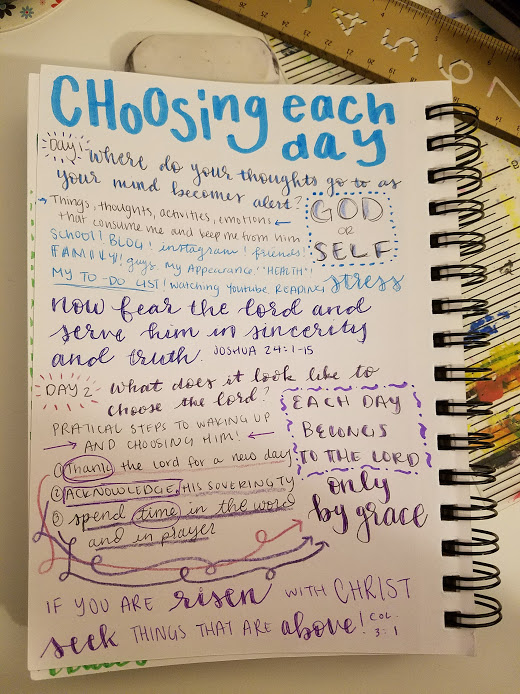 CHOOSing each
day
DAY 1 where do your thoughts go to as
your mind becomes alert?
Things, thoughts, activities, emotions
that consume me and keep me from him
SCHOOL! BLOG! instagram! friends!
FAMILY! guys, my Appearance! "HEALTH"!
MY TO-DO LIST! watching Youtube, READING, stress
GOD
OR
SELF
now fear the lord and
serve him in sincerity
and truth. JOSHUA 24:1-15
DAY 2 What does it look like to
choose the lord?
PRATICAL STEPS TO WAKING UP
AND CHOOSING HIM!
Thank the lord for a new day
ACKNOWLEDGE HIS SOVERINGTY
spend time in the word
and in prayer
EACH DAY
BELONGS
TO THE LORD
only
by grace
IF YOU ARE risen WITH CHRIST
seek THINGS THAT ARE above! COL.
3:1
5
6
7